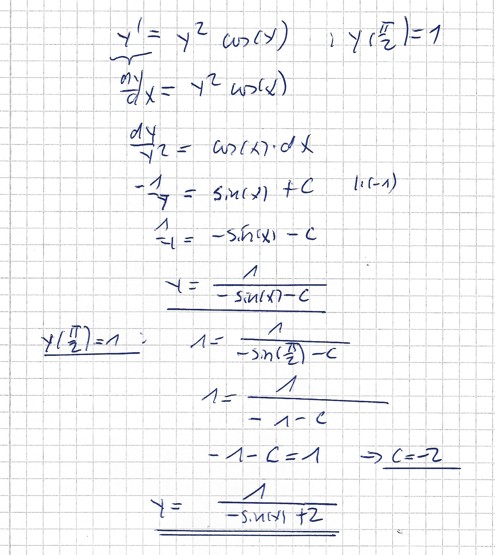 y' = y² cos(x) ; y(π/2) = 1
dy/dx = y² cos(x)
dy/y² = cos(x)·dx
-1/y = sin(x) + C |:(-1)
1/y = -sin(x) - C
y = 1/(-sin(x) - C)
y(π/2) = 1 : 1 = 1/(-sin(π/2) - C)
1 = 1/(-1 - C)
-1 - C = 1 → C = -2
y = 1/(-sin(x) + 2)